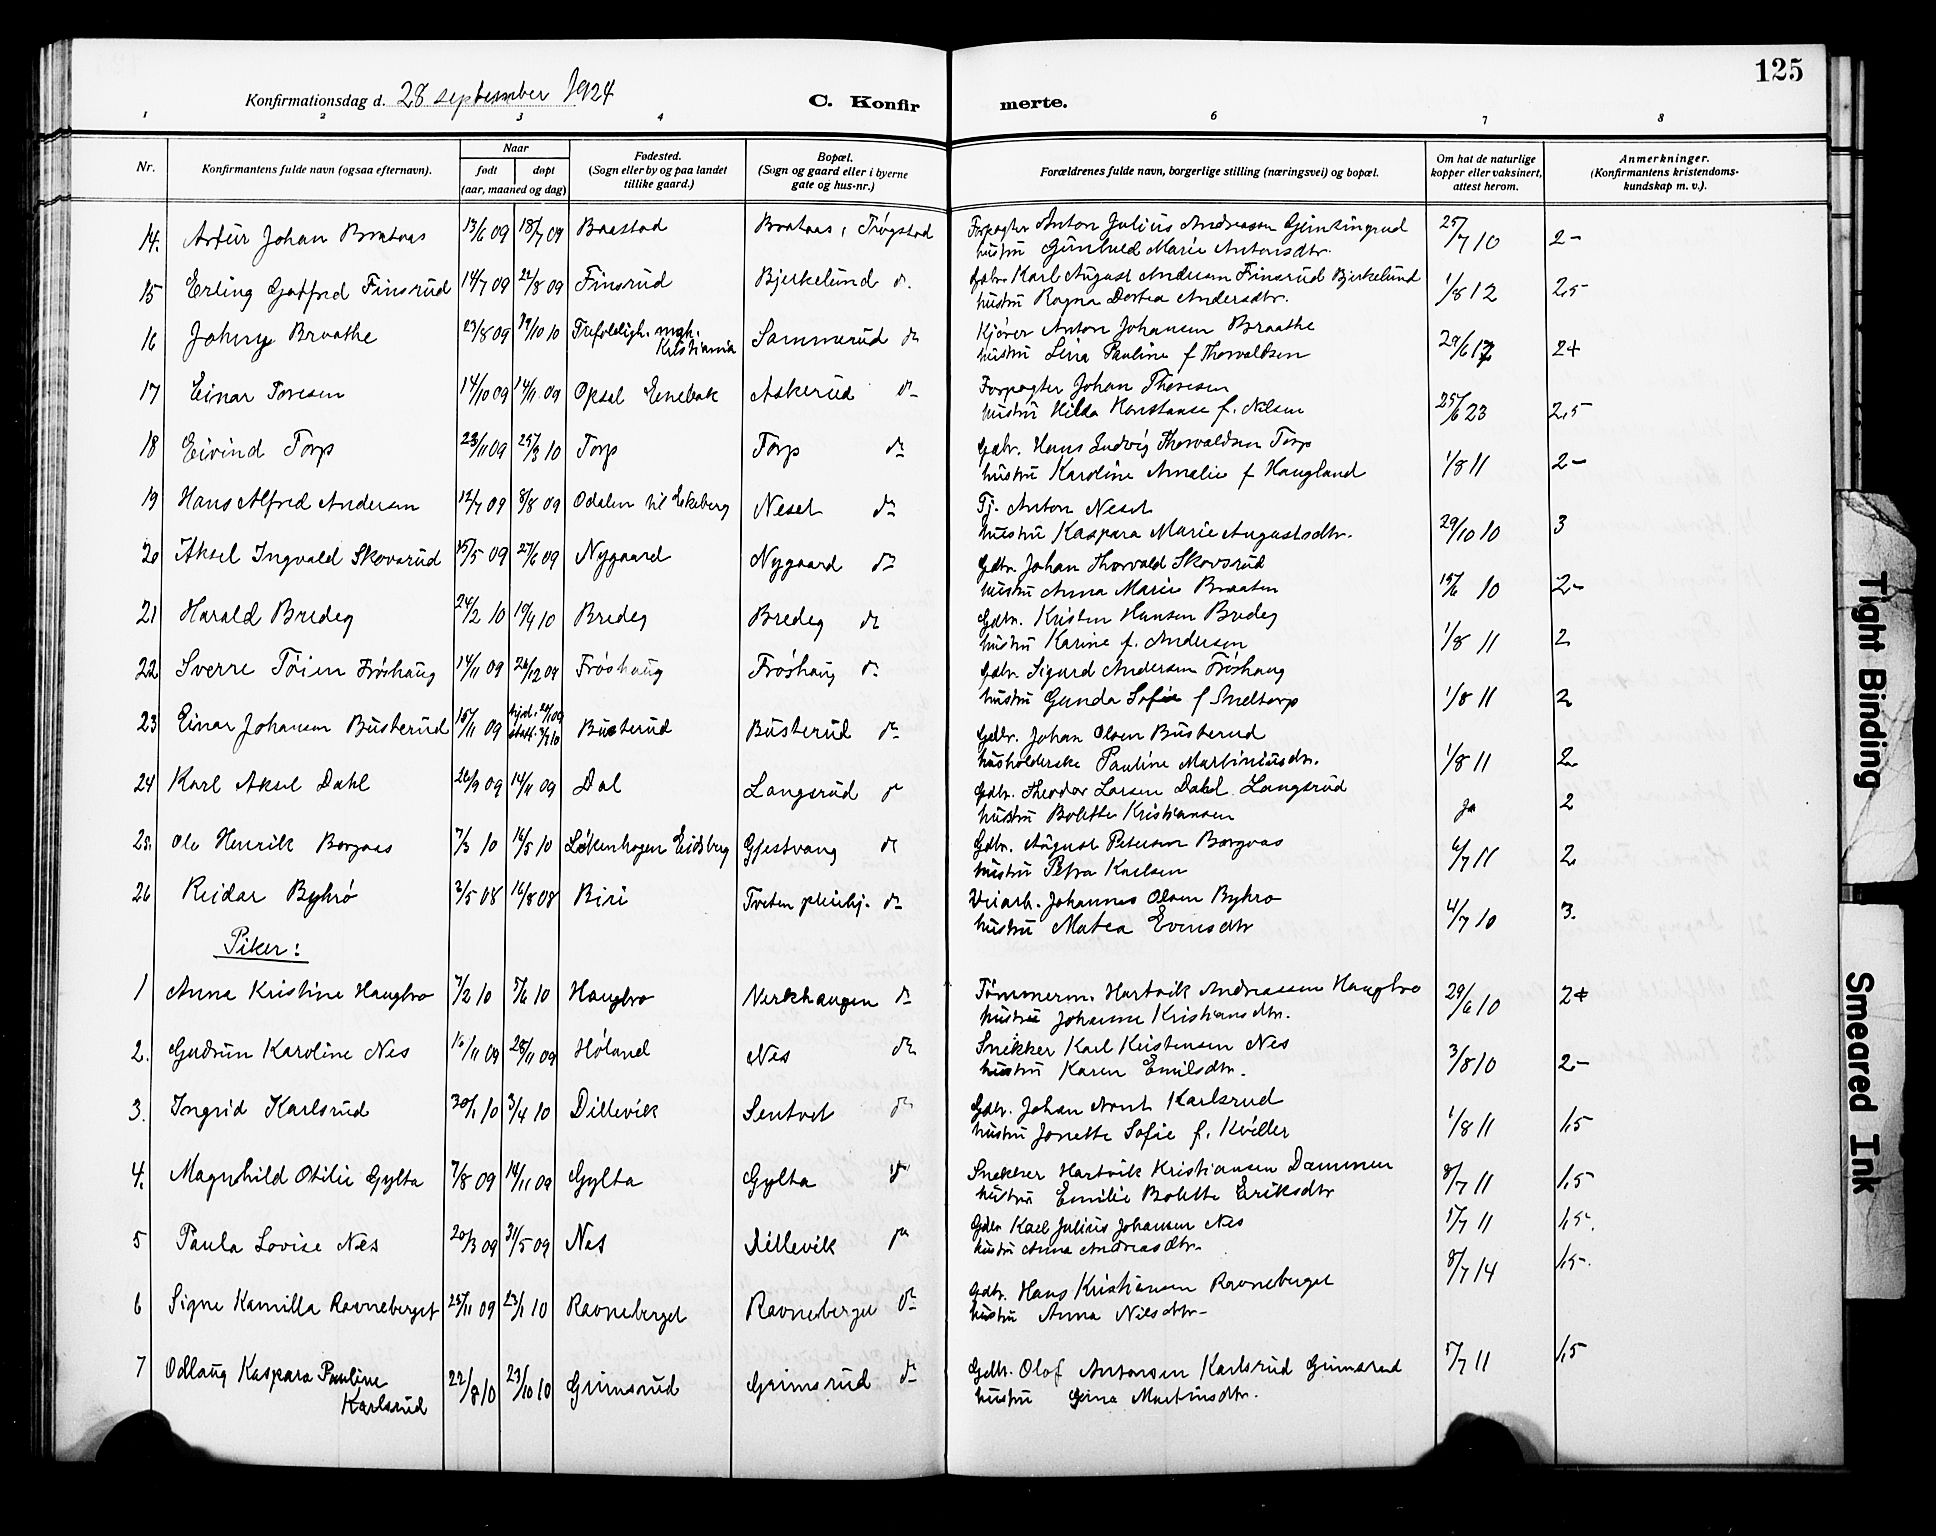 125
Konfirmationsdag d. 28 september 1924
C. Konfirmerte.
1 2 3 4 6 7 8
Nr.
Konfirmantens fulde navn (ogsaa efternavn).
Naar
født
døpt
(aar, maaned og dag)
Fødested.
(Sogn eller by og paa landet
tillike gaard.)
Bopæl.
(Sogn og gaard eller i byerne
gate og hus-nr.)
Forældrenes fulde navn, borgerlige stilling (næringsvei) og bopæl.
Om hat de naturlige
kopper eller vaksinert,
attest herom.
Anmerkninger.
(Konfirmantens kristendoms-
kundskap m. v.).
14. Artur Johan Brataas 13/6 09 18/7 09 Baastad Brataas, Trøgstad Forpagter Anton Julius Andreasen 25/7 10 2-
hustru Gunhild Marie Antonsdtr.
15 Erling Gotfred Finsrud 14/7 09 22/8 09 Finsrud Bjerkelund do. Gdbr. Karl August Andersen Finsrud Bjerkelund 1/8 12 2,5
hustru Ragna Dortea Andersdtr.
16 Johny Braathe 23/8 09 19/10 10 Trefoldigh. mgh. Kristiania Sommerud do Kjører Anton Johansen Braathe 29/6 12 2+
hustru Lina Pauline f Thorvaldsen
17 Einar Toresen 14/10 09 14/11 09 Opsal Enebak Askerud do Forpagter Johan Thoresen
hustru Hilda Konstanse f. Nilsen 25/6 23 2,5
18 Eivind Torp 23/11 09 25/3 10 Torp Torp do Gdbr. Hans Ludvig Thorvaldsen Torp
hustru Karoline Amalie f Haugland 1/8 11 2-
19 Hans Alfred Andersen 12/7 09 8/8 09 Odalen til Ekeberg Neset do Tj. Anton Neset
hustru Kaspara Marie Augustsdtr. 29/10 10 3
20 Aksel Ingvald Skovsrud 15/5 09 27/6 09 Nygaard Nygaard do Gdbr. Johan Thorvald Skovsrud
hustru Anna Marie Braaten 15/6 10 2-
21 Harald Bredeg 24/2 10 10/4 10 Bredeg Bredeg do Gdbr. Kristen Hansen Bredeg
hustru Karine f. Andersen 1/8 11 2
22 Sverre Töien Frøshaug 14/11 09 26/12 09 Frøshaug Frøshaug do Gdbr. Sigurd Andersen Frøshaug
hustru Gunda Sofie f Sneltorp 1/8 11 2
23 Einar Johansen Busterud 15/11 09 Busterud Busterud do Gdbr. Johan Olsen Busterud
husholderske Pauline Martiniusdtr. 1/8 11 2
24 Karl Aksel Dahl 26/9 09 14/11 09 Dal Langsrud do Gdbr. Theodor Larsen Dahl Langsrud ja 2
hustru Bolette Kristiansen
25. Ole Henrik Borgaas 7/3 10 16/5 10 Løkenhagen Eidsberg Gjestvang do Gdbr. August Petersen Borgaas 6/7 11 2
hustru Petra Karlsen
26 Reidar Byhrø 3/5 08 16/8 08 Biri Tveten pleiehj. do Veiarb. Johannes Olsen Byhro 4/7 10 3.
hustru Matea Evensdtr
Piker:
1 Anna Kristine Haugbro 7/2 10 5/6 10 Haugbro Verkhaugen do Tømmerm. Hartvik Andreassen Haugbro 29/6 10 2+
hustru Johanne Kristiansdtr.
2. Gudrun Karoline Nes 16/11 09 28/11 09 Høland Nes do Snikker Karl Kristensen Nes 3/8 10 2-
hustru Karen Emilsdtr.
3. Ingrid Karlsrud 30/1 10 3/4 10 Dillevik Sentvet do Gdbr. Johan Arnt Karlsrud
hustru Jonette Sofie f. Kviller 1/8 11 1,5
4. Magnhild Otilie Gylta 7/8 09 14/11 09 Gylta Gylta do Snekker Hartvik Kristiansen Dammen 8/7 11 1,5
hustru Emilie Bolette Eriksdtr
5 Paula Lovise Nes 20/3 09 31/5 09 Nes Dillevik do Gdbr Karl Julius Johansen Nes 5/7 11 1,5
hustru Anna Andreasdtr.
6 Signe Kamilla Ravneberget 25/11 09 23/1 10 Ravneberget Ravneberget do Gdbr. Hans Kristiansen Ravneberget 8/7 14 1,5
hustru Anna Nilsdtr
7 Odlaug Kaspara Pauline Karlsrud 22/8 10 23/10 10 Grimsrud Grimsrud do Gdbr. Olof Antonsen Karlsrud Grimsrud 5/7 11 1,5
hustru Gina Martinsdtr.
Tight Binding
Smeared Ink